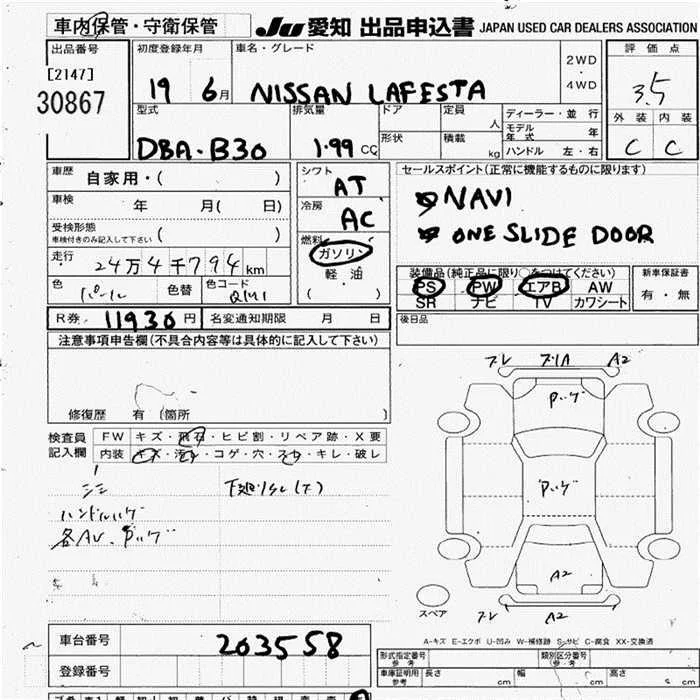 車内保管・守衛保管 Ju 愛知 出品申込書 JAPAN USED CAR DEALERS ASSOCIATION
出品番号
[2147]
30867
初度登録年月
19 6月
車名・グレード
NISSAN LAFESTA
2WD
・
4WD
評価点
3.5
外装 内装
C C
型式
DBA-B30
排気量
1.99 CC
ドア
形状
定員
人
積載
kg
ディーラー・並行
モデル年式 年
ハンドル 左・右
車歴
自家用・( )
車検 年 月( 日)
受検形態
車検付きのみ記入して下さい ( )
走行
24万4千794km
色 パール 色替 色コード QM1
シフト
AT
冷房
AC
燃料
ガソリン
軽・油
( )
セールスポイント(正常に機能するものに限ります)
NAVI
ONE SLIDE DOOR
装備品(純正品に限り○をつけてください)
PS PW エアB AW
SR ナビ TV カワシート
新車保証書
有・無
後日品
R券 11930円 名変通知期限 月 日
注意事項申告欄(不具合内容等は具体的に記入して下さい)
修復歴 有 〔箇所 〕
検査員
記入欄
FW キズ・飛石・ヒビ割・リペア跡・X要
内装 キズ・汚レ・コゲ・穴・スレ・キレ・破レ
シミ
ハンドルハゲ
A2
A2
A2
スペア
A-キズ E-エクボ U-凹み W-補修跡 S-サビ C-腐食 XX-交換済
車台番号 203558
登録番号
形式指定番号
参考
類別区分番号
参考
車庫証明用
参考
長さ cm 幅 cm 高さ cm